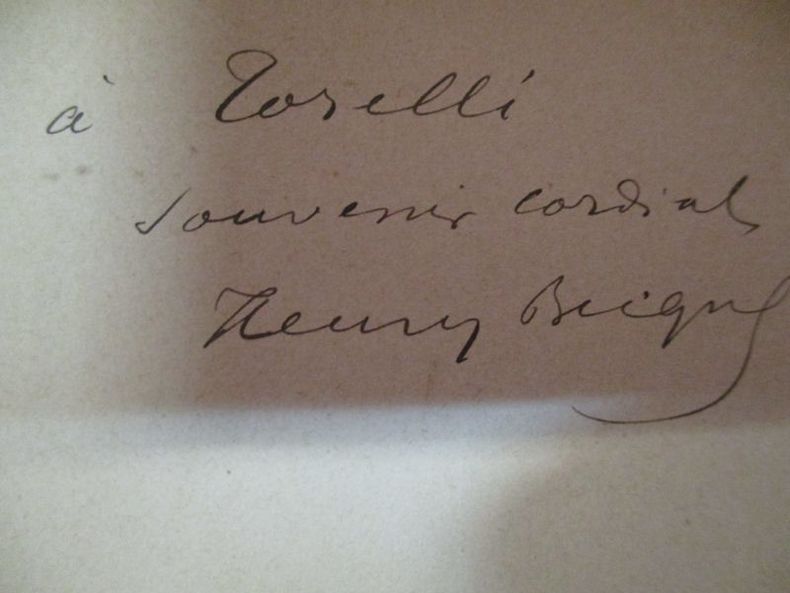 à Torelli
souvenir cordial
Henry Becque